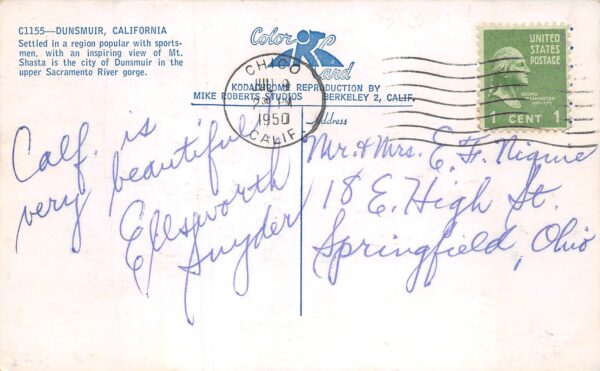 C1155—DUNSMUIR, CALIFORNIA
Settled in a region popular with sports-
men, with an inspiring view of Mt.
Shasta is the city of Dunsmuir in the
upper Sacramento River gorge.
Color Card
KODACHROME REPRODUCTION BY
MIKE ROBERTS STUDIOS BERKELEY 2, CALIF.
Address
CHICO
1950
CALIF.
UNITED
STATES
POSTAGE
1 CENT 1
Calf. is
very beautiful
Ellsworth
Snyder
Mr. & Mrs. E. F.
18 E. High St.
Springfield, Ohio